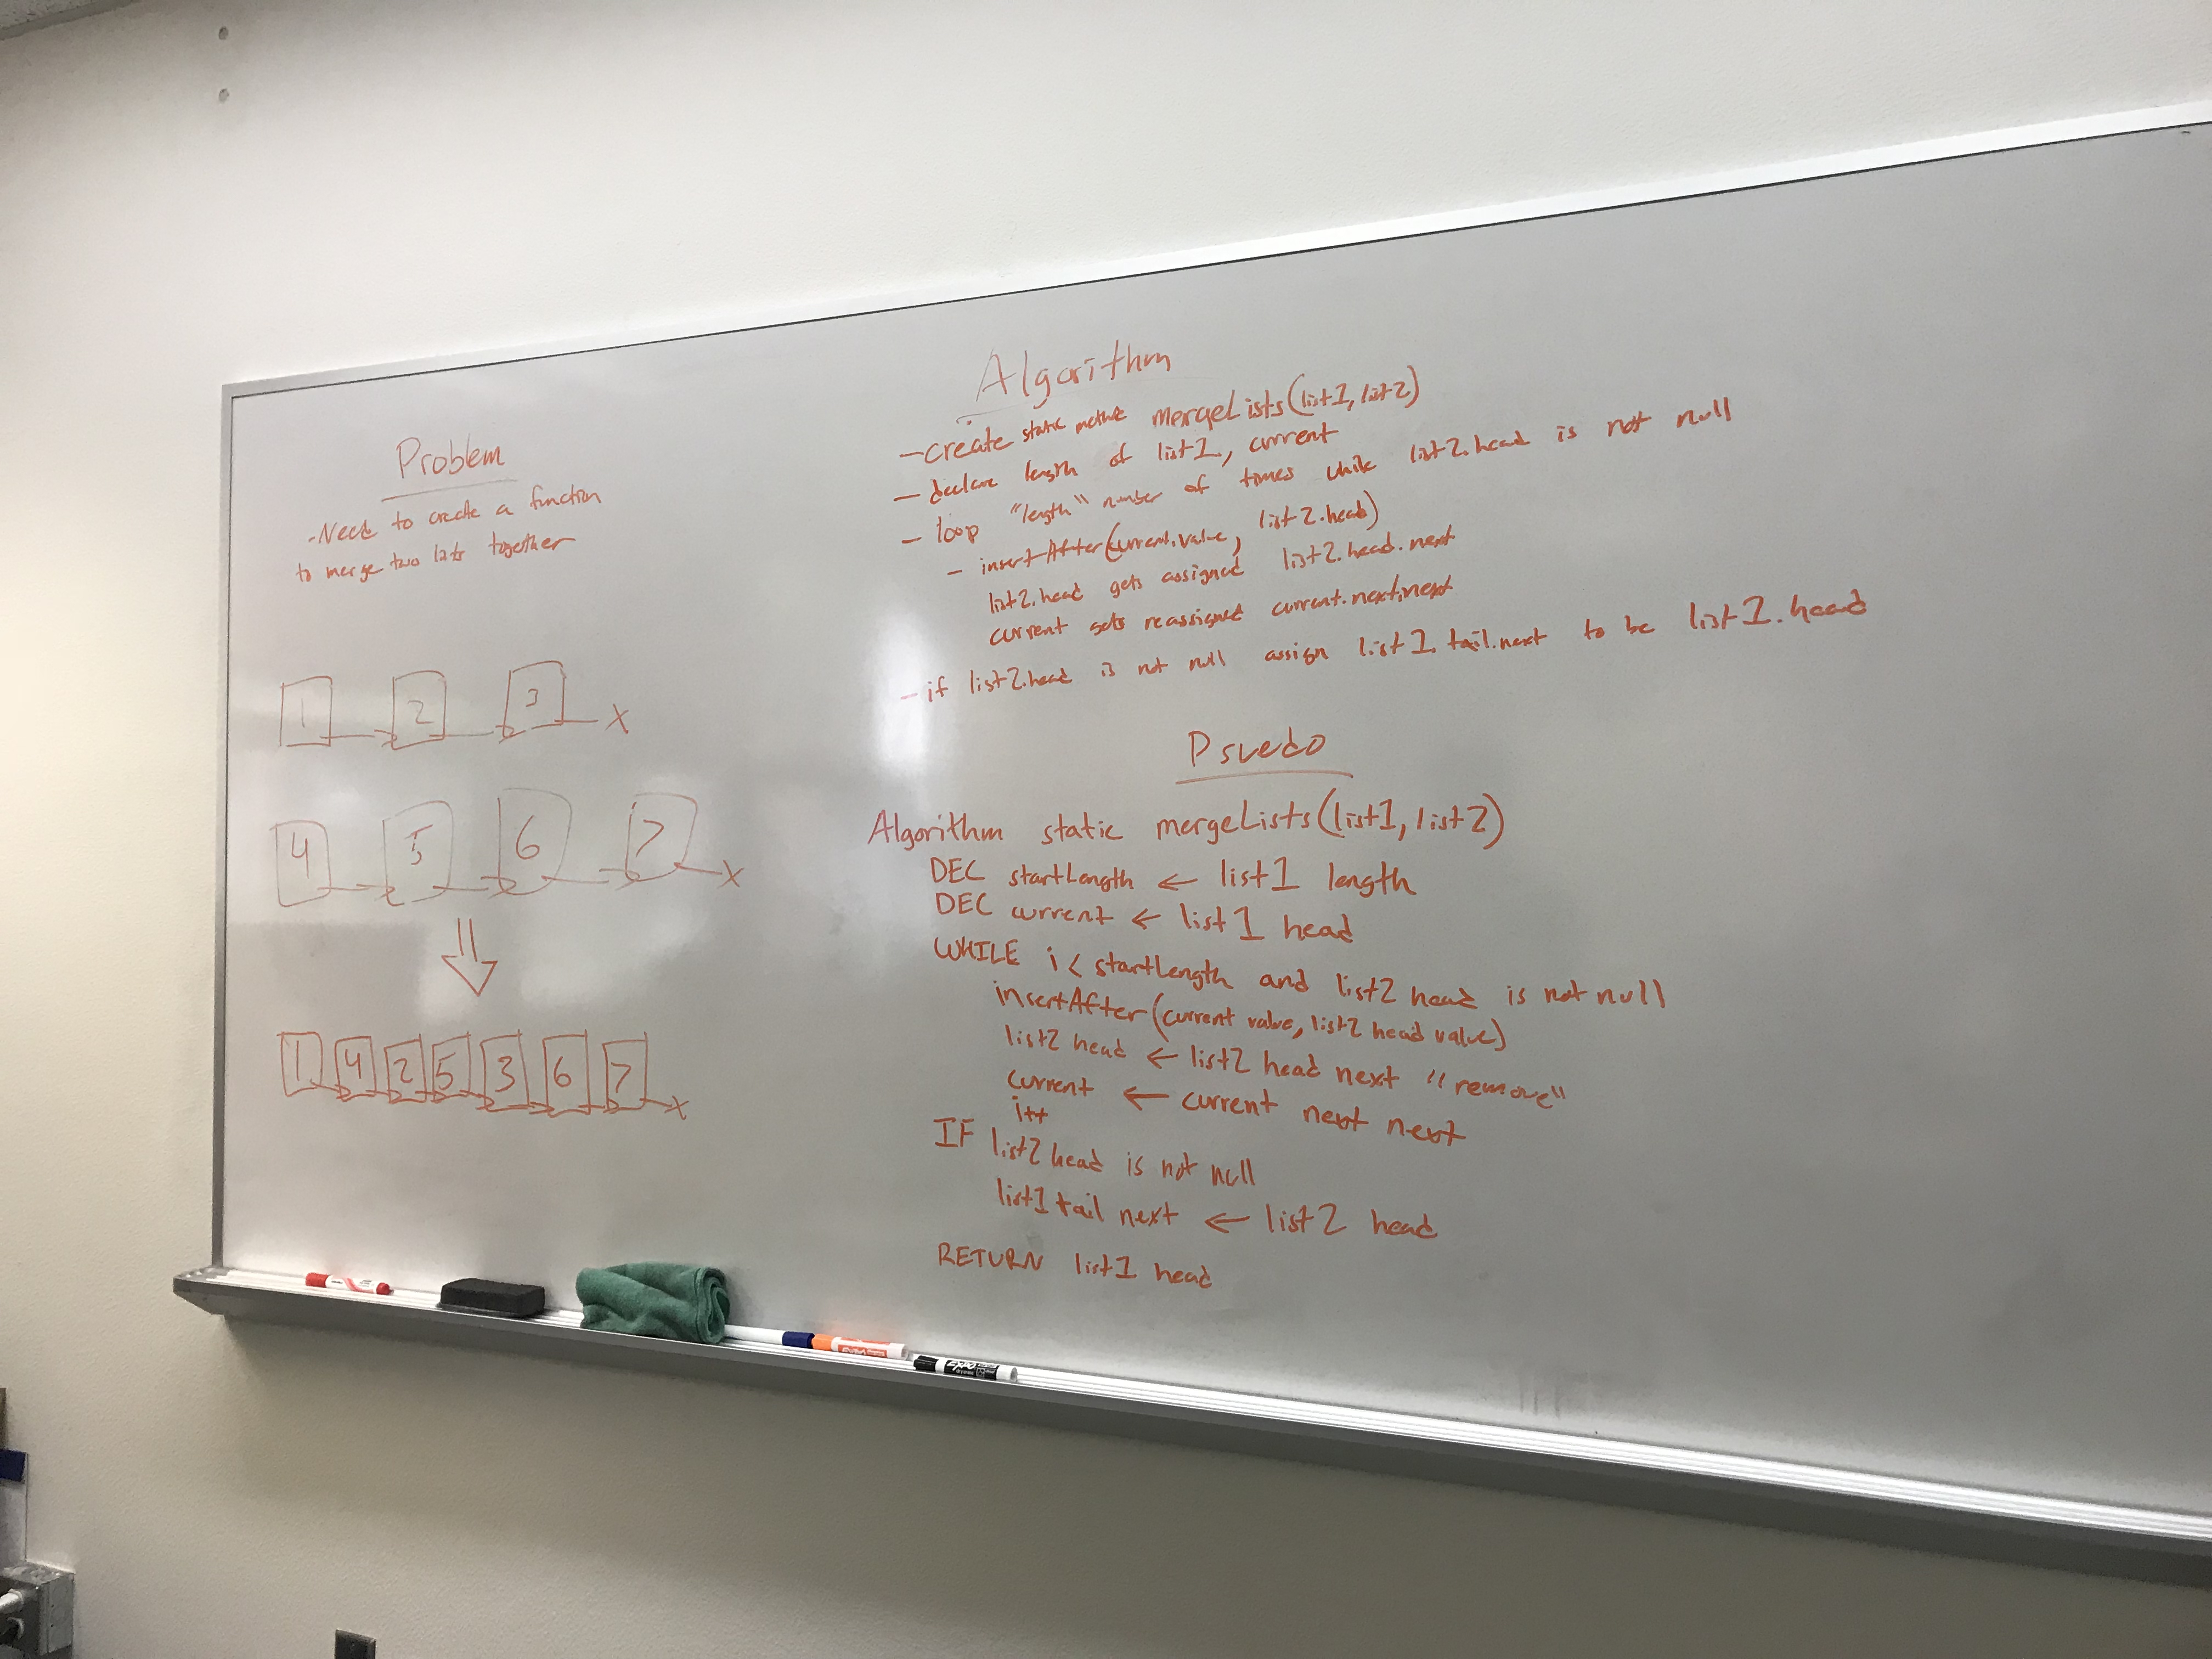 Problem
-Need to create a function
to merge two lists together
1 2 3 X
4 5 6 7 X
1 4 2 5 3 6 7 X
Algorithm
- create static method mergeLists(list1, list2)
- declare length of list1, current
- loop "length" number of times while list2.head is not null
- insertAfter(current.value, list2.head)
list2.head gets assigned list2.head.next
current gets reassigned current.next.next
- if list2.head is not null assign list1.tail.next to be list1.head
Psuedo
Algorithm static mergeLists(list1, list2)
DEC startLength ← list1 length
DEC current ← list1 head
WHILE i < startLength and list2 head is not null
insertAfter(current value, list2 head value)
list2 head ← list2 head next "remove"
current ← current next next
i++
IF list2 head is not null
list1 tail next ← list2 head
RETURN list1 head
EXPO